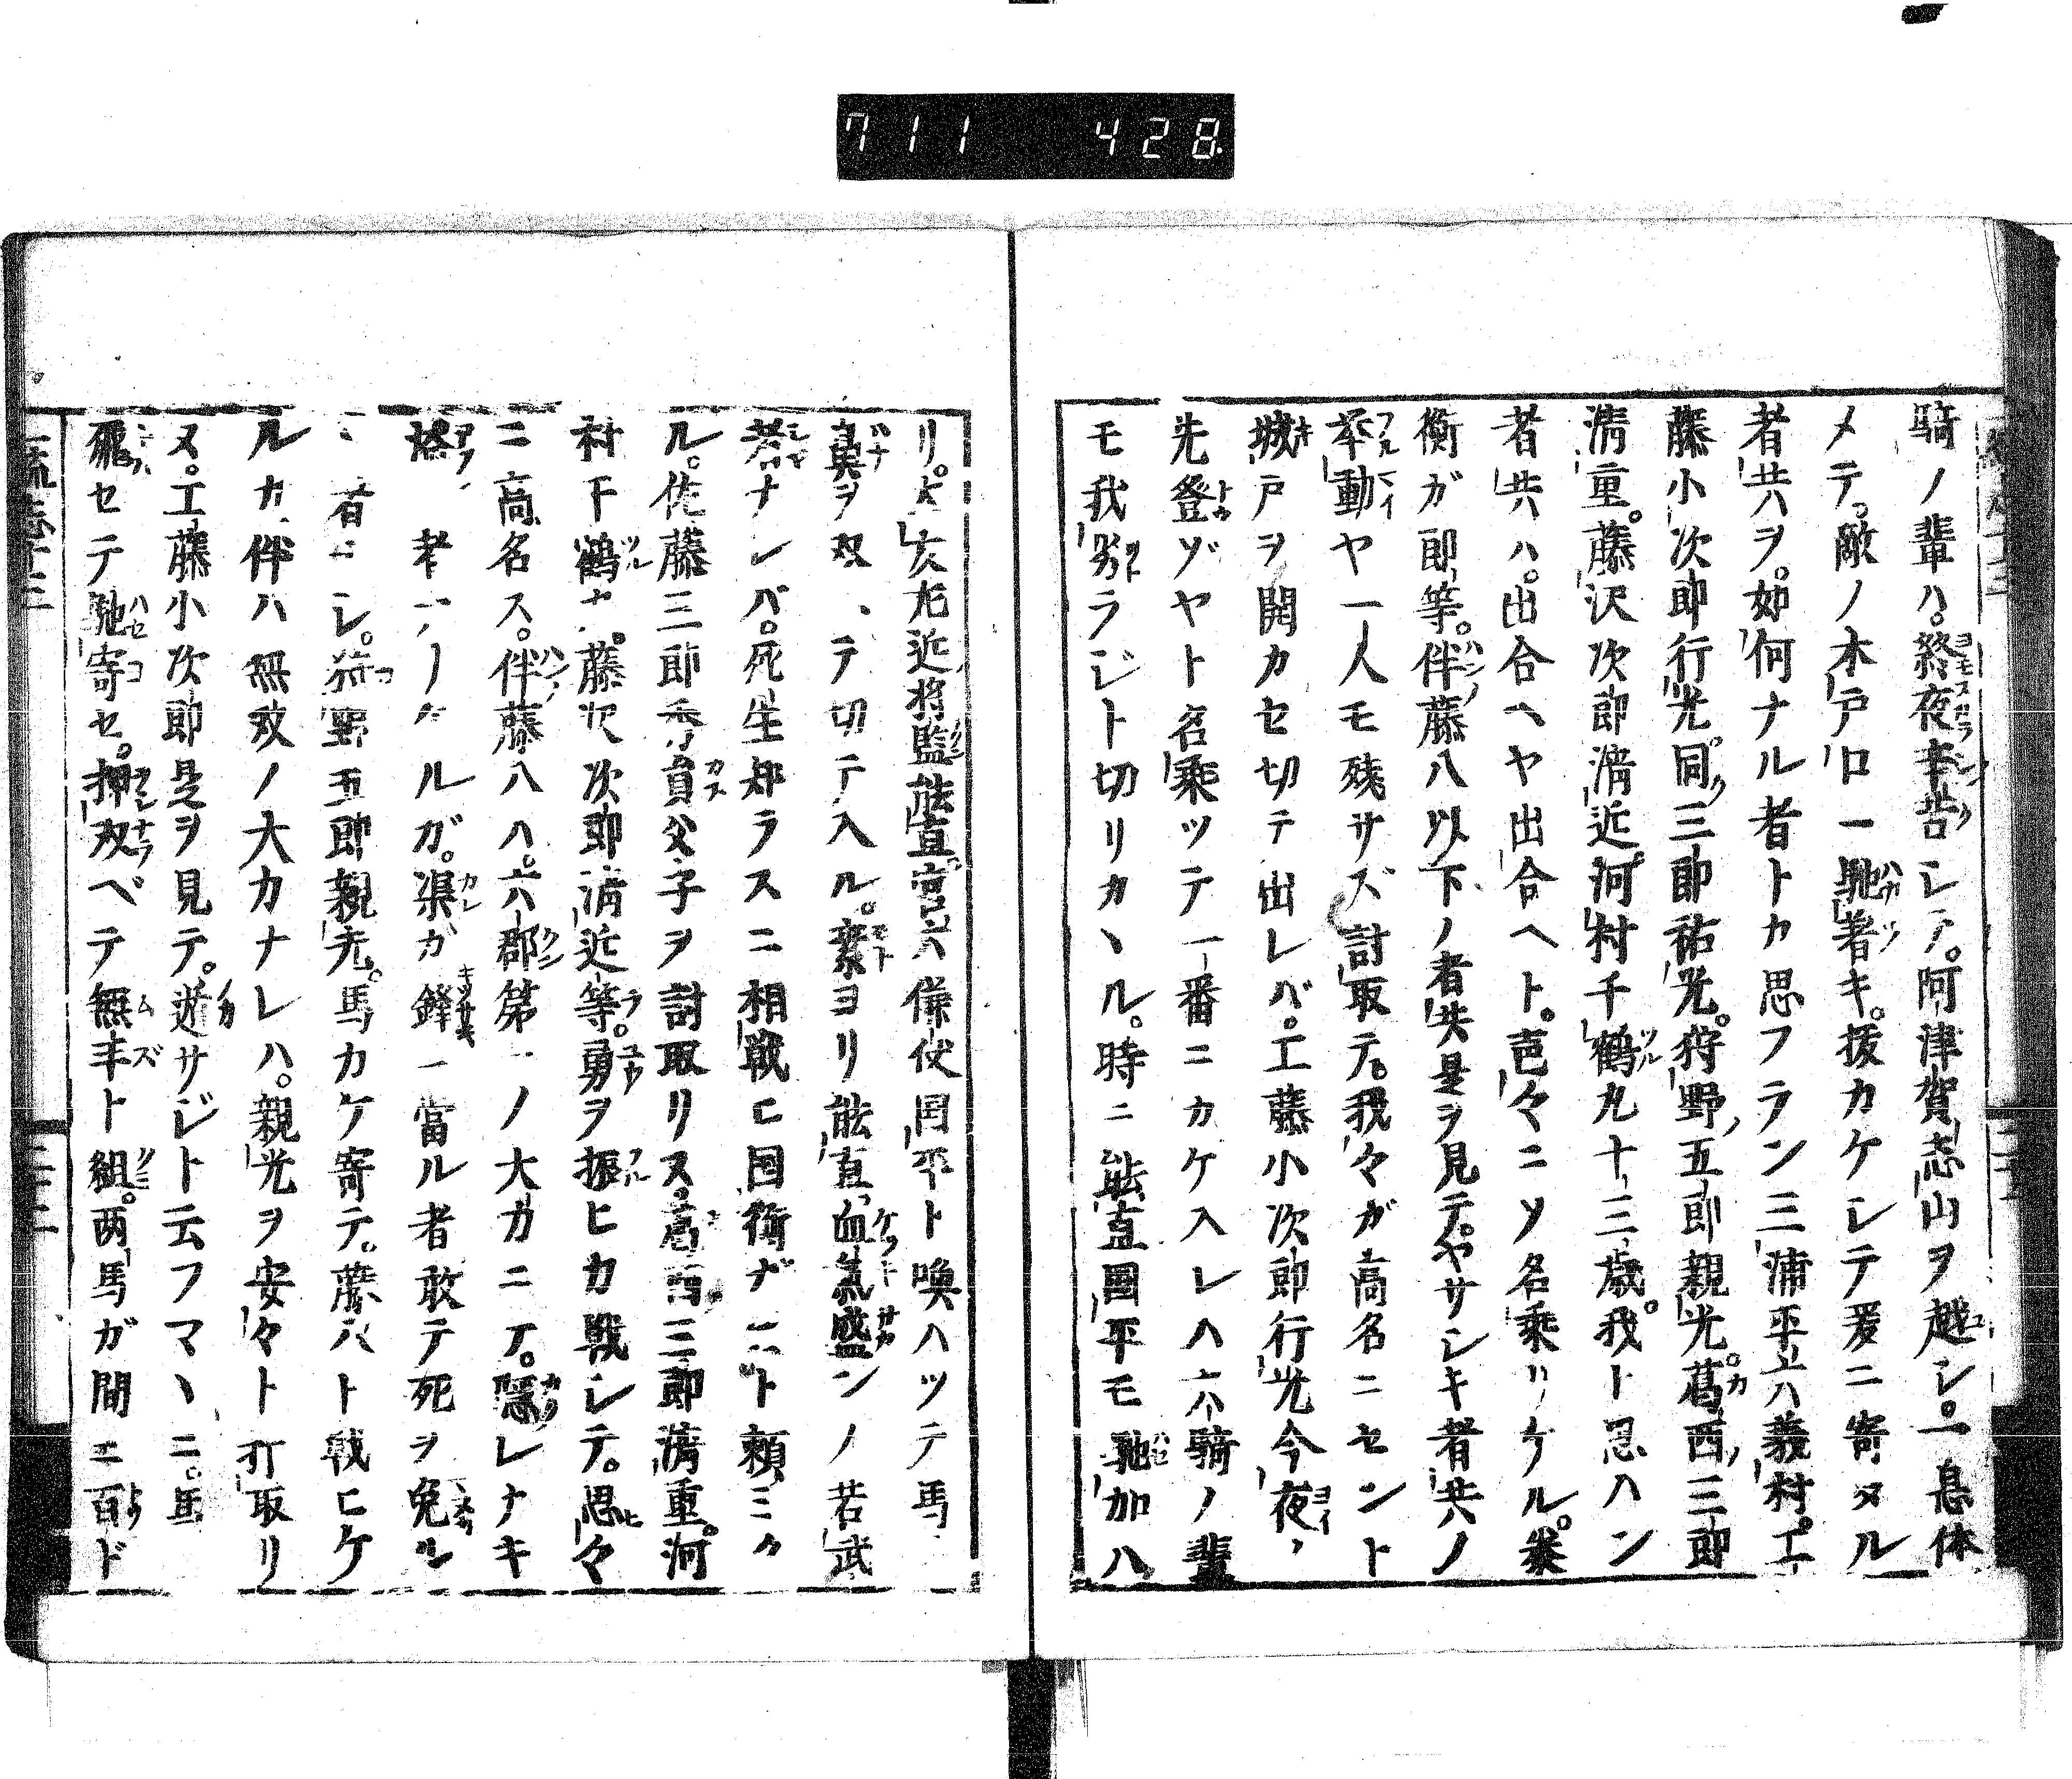 711 428
騎ノ輩ハ。終夜辛苦シテ。阿津賀志山ヲ越シ。一息体
メテ。敵ノ木戸口一馳着キ。抜カケシテ爰ニ寄タル
者共ヲ。如何ナル者トカ思フラン三浦平六義村。工
藤小次郎行光。同三郎祐光。狩野五郎親光。葛西三郎
清重。藤沢次郎清近。河村千鶴丸十三歳。我ト思ハン
者共ハ。出合ヘヤ出合ヘト。声々ニソ名乗リケル。
衡ガ郎等。伴藤八以下ノ者共是ヲ見テ。ヤサシキ者共ノ
挙動ヤ一人モ残サズ討取テ。我々ガ高名ニセント
城戸ヲ開カセ切テ出レバ。工藤小次郎行光今夜ノ
先登ゾヤト名乗ツテ一番ニカケ入レハ六騎ノ輩
モ我劣ラジト切リカヽル。時ニ能直國平モ馳加ハ
リ。大友左近将監能直宮六傔仗国平ト喚ハツテ馬
鼻ヲ双テ切テ入ル。素ヨリ能直血氣盛ンノ若武
者ナレバ。死生知ラスニ相戦ヒ国衡ガ頼ミ
ル。佐藤三郎秀員父子ヲ討取リヌ。葛西三郎清重。河
村千鶴丸。藤沢次郎清近等。勇ヲ振ヒカ戦シテ。思々
ニ高名ス。伴藤八ハ。六郡第一ノ大力ニテ。隠レナキ
者ナルガ。渠ガ鋒一當ル者敢テ死ヲ免ル
者ナシ。狩野五郎親光。馬カケ寄テ。藤八ト戦ヒケ
ルカ伴ハ無双ノ大カナレハ。親光ヲ安々ト打取リ
ヌ。工藤小次郎是ヲ見テ。遁サジト云フマヽニ。馬
飛セテ馳寄セ。押双ベテ無手ト組。両馬ガ間ニ百ド